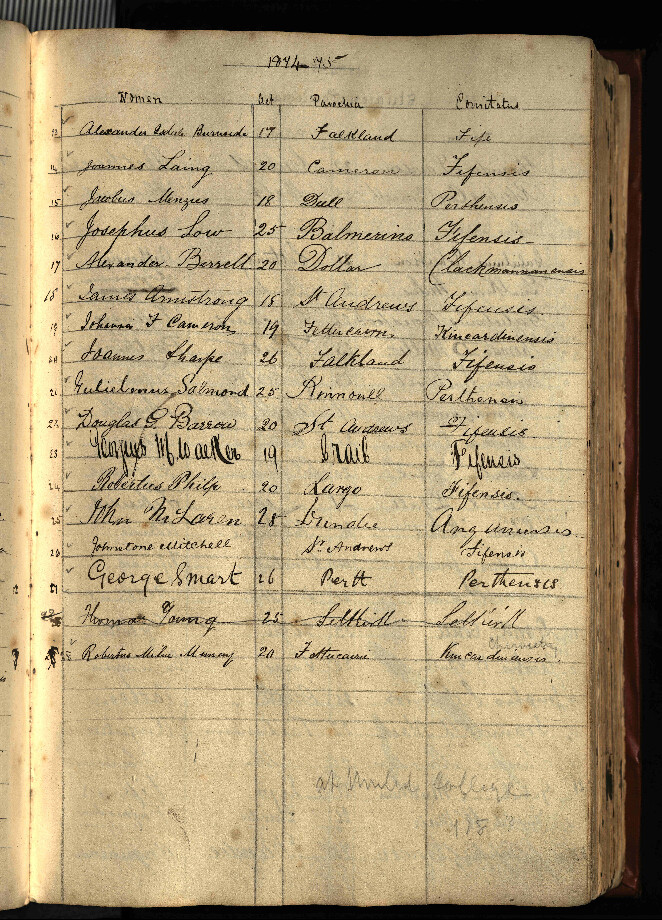 1874-75
Nomen Aet Parochia Comitatus
13 Alexander Burnside 17 Falkland Fife
14 Joannes Laing 20 Cameron Fifensis
15 Jacobus Menzies 18 Dull Perthensis
16 Josephus Low 25 Balmerino Fifensis
17 Alexander Berrell 20 Dollar Clackmannanensis
18 James Armstrong 18 St Andrews Fifensis
19 Johannes F Cameron 19 Kincardinensis
20 Joannes Sharpe 26 Falkland Fifensis
21 Gulielmus Salmond 25 Kinnoull
22 Douglas G. Barron 20 St Andrews Fifensis
23 19 Crail Fifensis
24 Robertus Philp 20 Largo Fifensis.
25 John McLaren 28 Dundee
26 Johnstone Mitchell St Andrews Fifensis
27 George Smart 26 Perth Perthensis
Thomas Young 25 Selkirk Selkirk
Robertus Milne Murray 20 Fettercairn Kincardinensis
at United College